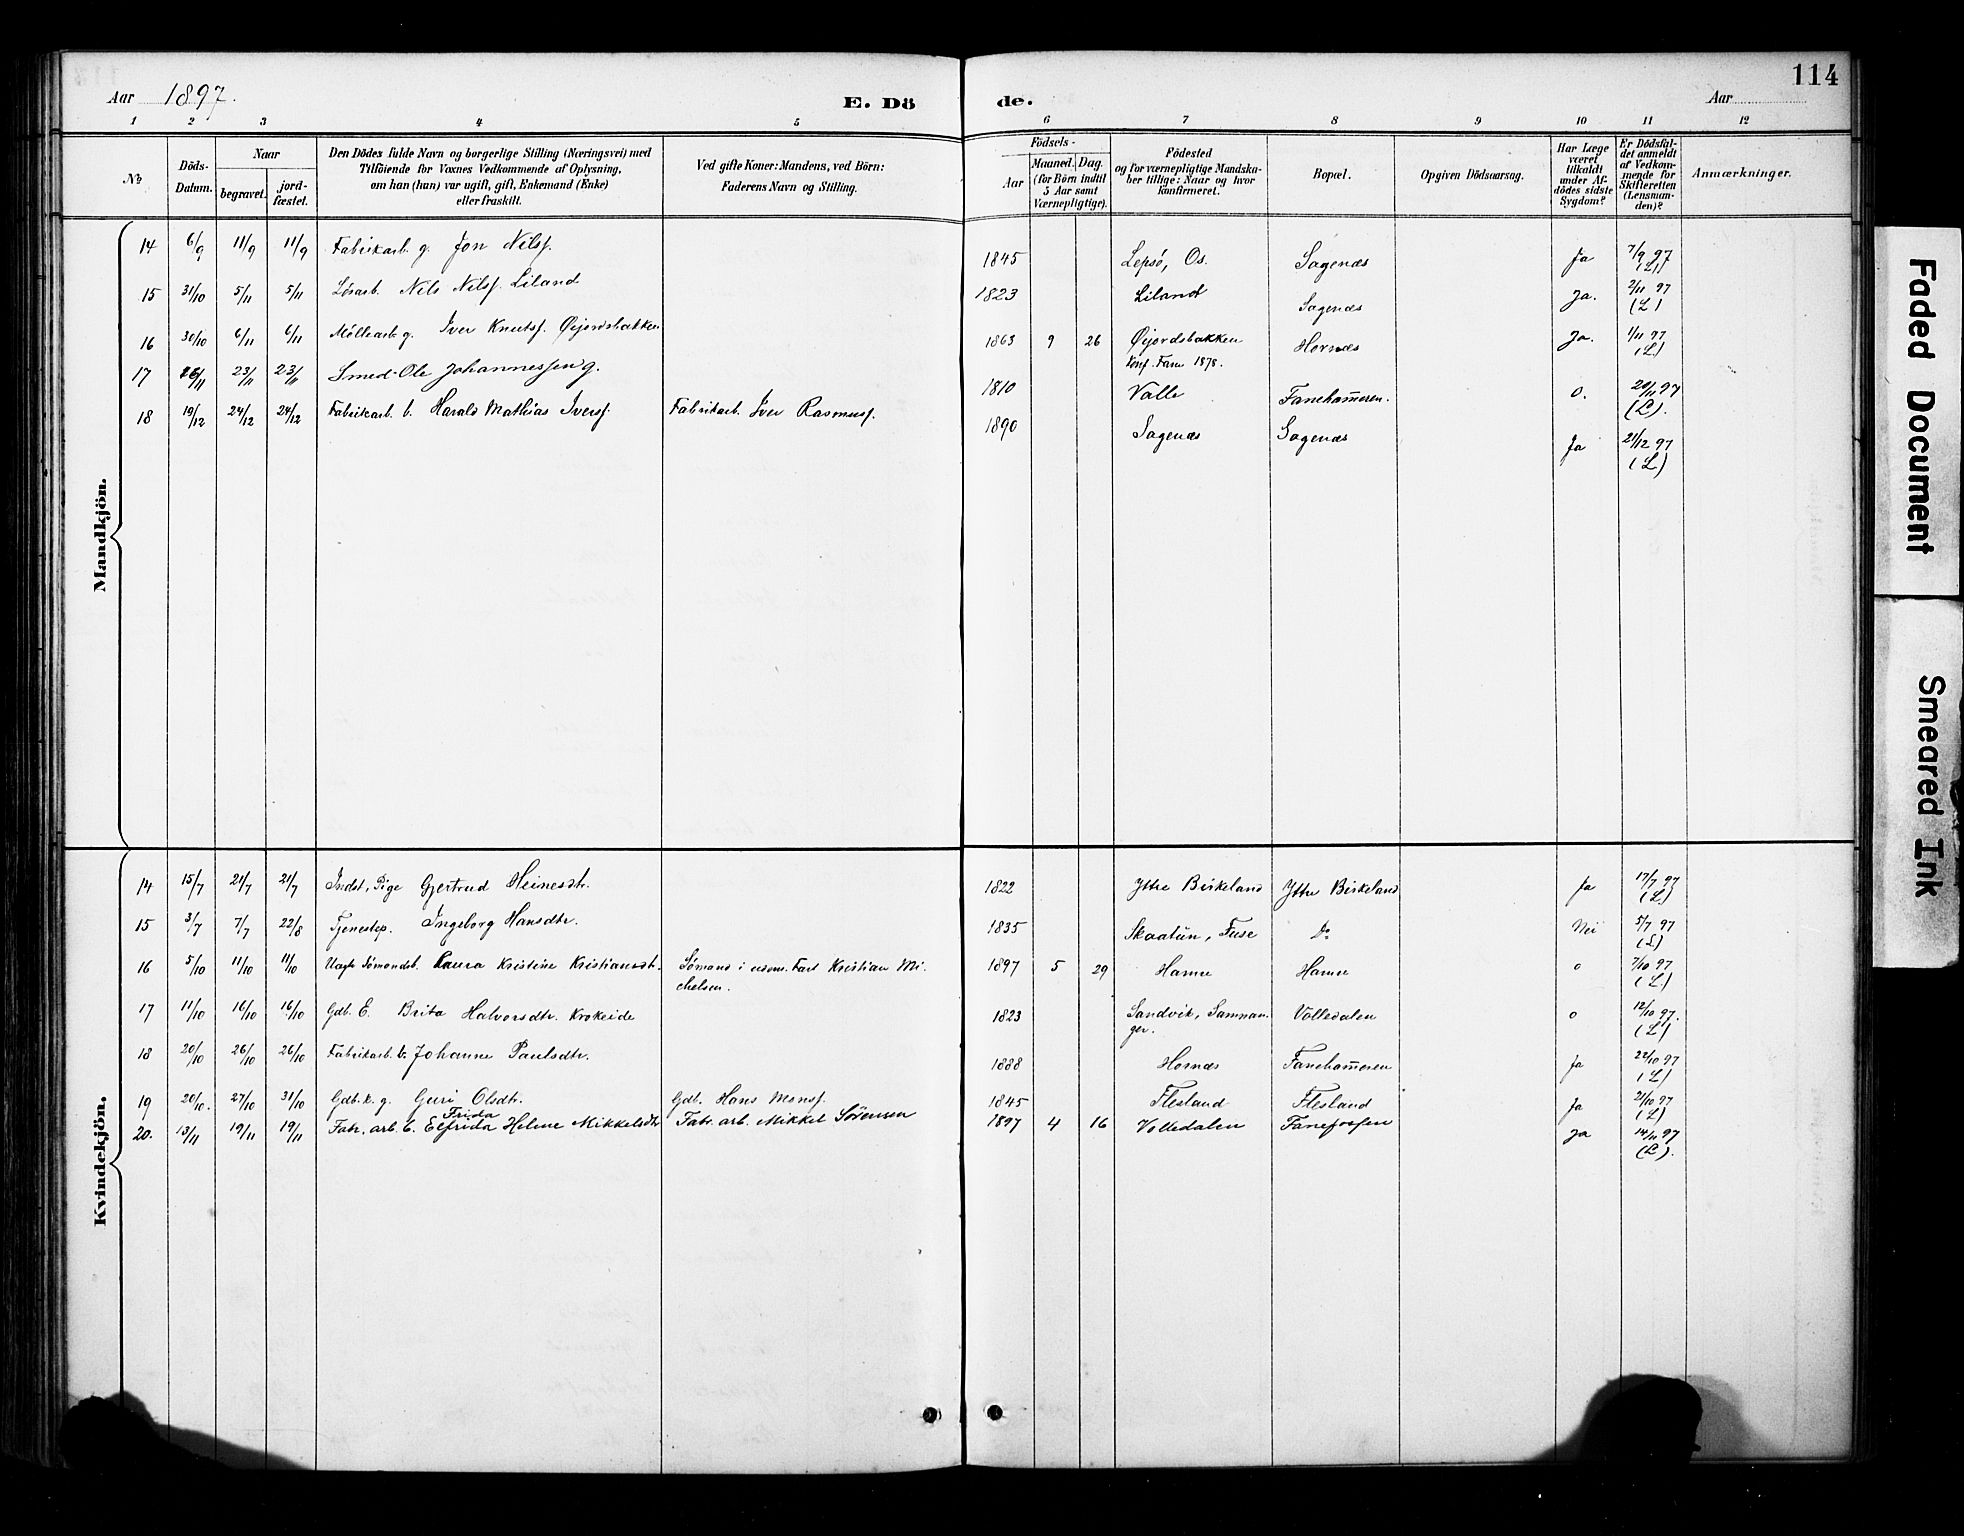 114
Aar 1897.
E. Dö de.
Aar
1 2 3 4 5 6 7 8 9 10 11 12
№
Döds-Datum.
Naar
begravet.
jord-fæstet.
Den Dödes fulde Navn og borgerlige Stilling (Næringsvei) med
Tilföiende for Voxnes Vedkommende af Oplysning,
om han (hun) var ugift, gift, Enkemand (Enke)
eller fraskilt.
Ved gifte Koner: Mandens, ved Börn:
Faderens Navn og Stilling.
Födsels-
Aar
Maaned. Dag.
(for Börn indtil
5 Aar samt
Værnepligtige).
Födested
og for værnepligtige Mandska-
ber tillige: Naar og hvor
konfirmeret.
Bopæl.
Opgiven Dödsaarsag.
Har Læge
været
tilkaldt
under Af-
dödes sidste
Sygdom?
Er Dödsfal-
det anmeldt
af Vedkom-
mende for
Skifteretten
(Lensman-
den)?
Anmærkninger.
Mandkjön.
14 6/9 11/9 11/9 Fabrikarb. g. Jon Nilsf. 1845 Lepsø, Os. Sagenæs Ja 7/9 97 (L)
15 31/10 5/11 5/11 Løsarb. Nils Nilsf. Liland 1823 Liland Sagenæs Ja. 2/11 97 (L)
16 30/10 6/11 6/11 Møllearb. g. Iver Knutsf. Øijordsbakken 1863 9 26 Øijordsbakken Hornæs Ja. 1/11 97 (L)
Konf. Fane 1878.
17 23/11 23/11 Smed Ole Johannessen g. 1810 Valle Faneham̄eren. o. 20/11 97 (L).
18 19/12 24/12 24/12 Fabrikarb. b. Harald Mathias Iversf. Fabrikarb. Iver Rasmusf. 1890 Sagenæs Sagenæs Ja 21/12 97 (L)
Kvindekjön.
14 15/7 21/7 21/7 Indst, Pige Gjertrud Heinesdtr. 1822 Ytre Birkeland Ytre Birkeland Ja 17/7 97 (L)
15 3/7 7/7 22/8 Tjenestep. Ingeborg Hansdtr. 1835 Skaatün, Fuse Do Nei 5/7 97 (L)
16 5/10 11/10 11/10 Uægte Sømandsb. Laura Kristine Kristiansdt. Sømand i udenr. Fart Kristian Mi- 1897 5 29 Hamre Hamre o 7/10 97 (L)
chelsen.
17 11/10 16/10 16/10 Gdb. E. Brita Halvorsdtr. Krokeide 1823 Sandvik, Samnan- Volledalen o 12/10 97. (L)
ger.
18 20/10 26/10 26/10 Fabrikarb. b. Johanne Paulsdtr. 1888 Hornæs Faneham̄eren Ja 22/10 97 (L)
19 20/10. 27/10 31/10 Gdb. k. g. Guri Olsdtr. Gdb. Hans Monsf. 1845 Flesland Flesland Ja 21/10 97 (L)
Frida
20. 13/11 19/11 19/11 Fabr. arb. b. Elfrida Helene Mikkelsdtr Fabr. arb. Mikkel Sørensen 1897 4 16 Volledalen Fanefossen Ja 14/11 97 (L).
Faded Document
Smeared Ink